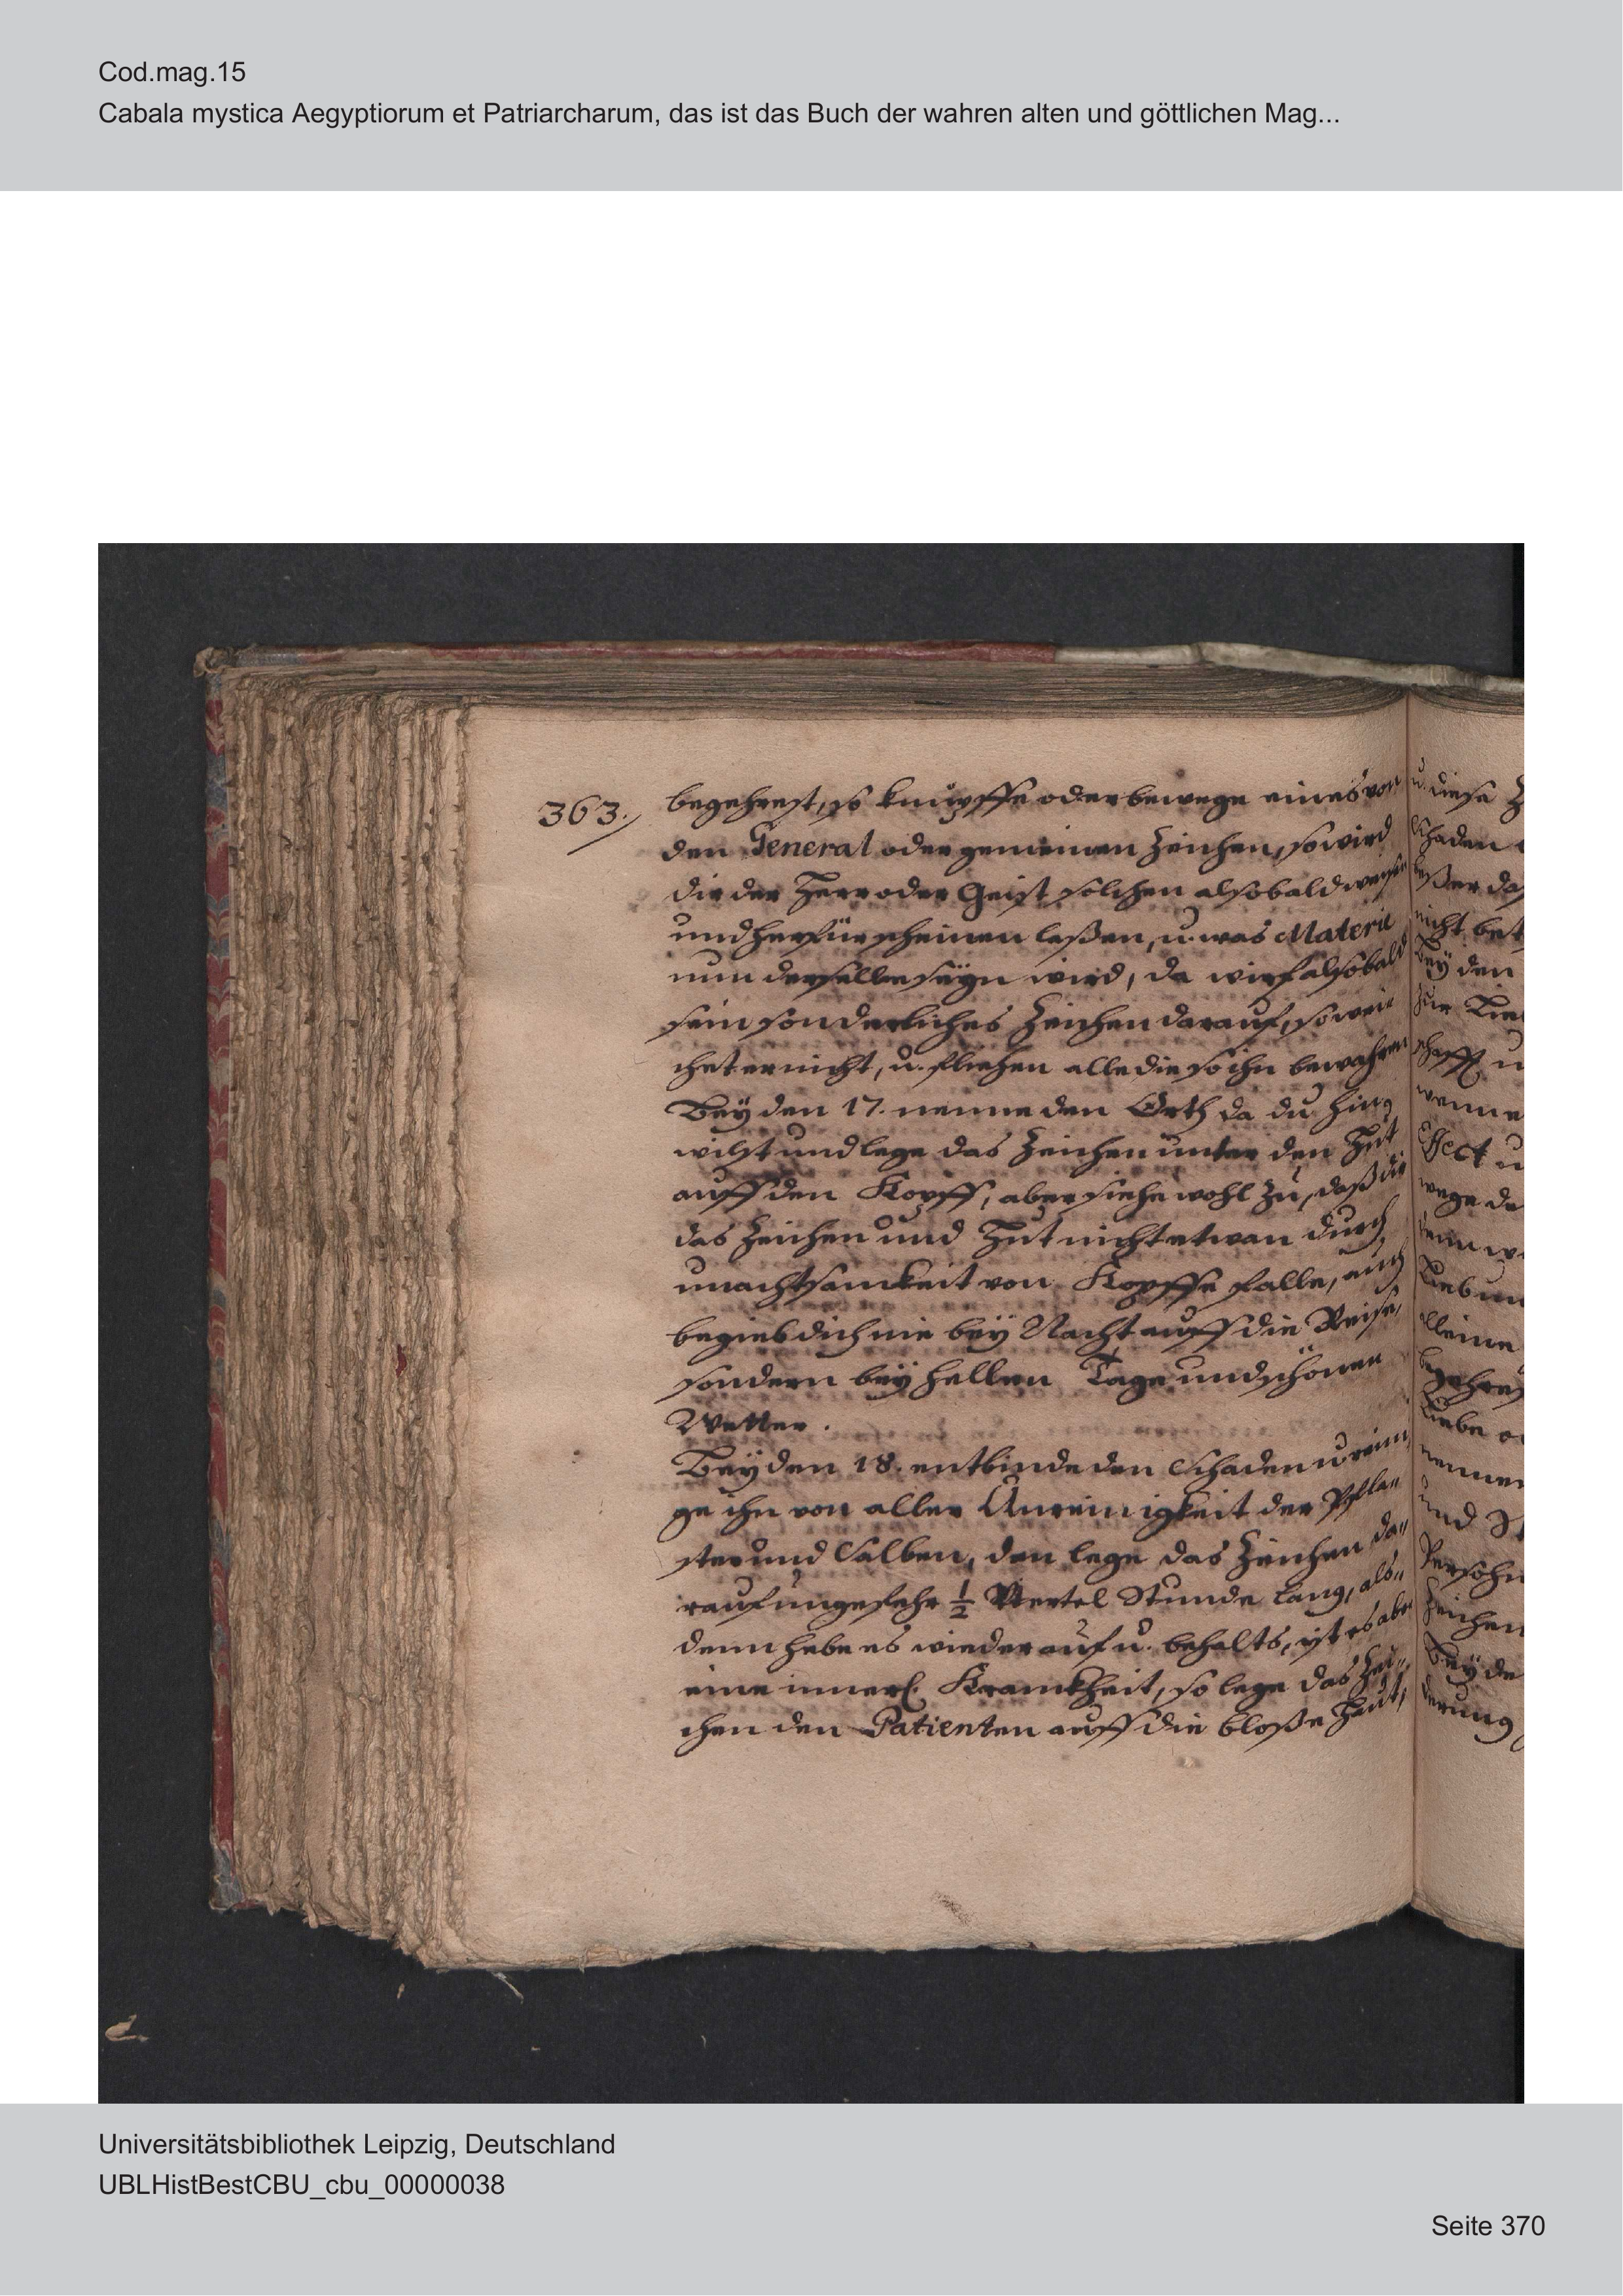 Cod.mag.15
Cabala mystica Aegyptiorum et Patriarcharum, das ist das Buch der wahren alten und göttlichen Mag...
363.
begehrest, so knüpffe oder bewege eines von
den General oder gemeinen Zeichen, so wird
dir der Herr oder Geist solchen alsobald weisen
und herfür scheinen laßen, u. was Materie
nun derselbe seyn wird, da wirf alsobald
sein sonderliches Zeichen darauf, so wei
chet er nicht, u. fliehen alle die so ihn bewahren
Bey den 17. nenne den Orth da du hin
wilst und lege das Zeichen unter den Hut
auff den Kopff, aber siehe wohl zu, daß dir
das Zeichen und Hut nicht etwan durch
unachtsamkeit von Kopffe falle, auch
begieb dich nie bey Nacht auff die Reise,
sondern bey hellen Tage und schönen
Wetter.
Bey den 18. entbinde den Schaden u reini
ge ihn von aller Unreinigkeit der Pfla
ster und Salben, den lege das Zeichen da„
rauf ungefehr ½ Viertel Stunde lang, als„
denn hebe es wieder auf u. behalts, ist es aber
eine innerl. Kranckheit, so lege das Zei„
chen den Patienten auff die bloße Haut,
u. diese
schaden
beßer das
nicht bet
Bey den
zur
schafft u
wenne
Effect u
wege da
denn
Lieb
alleine
begehres
Liebe o
nennen
und
Persohn
Zeichen
Bey de
derung
Universitätsbibliothek Leipzig, Deutschland
UBLHistBestCBU_cbu_00000038
Seite 370